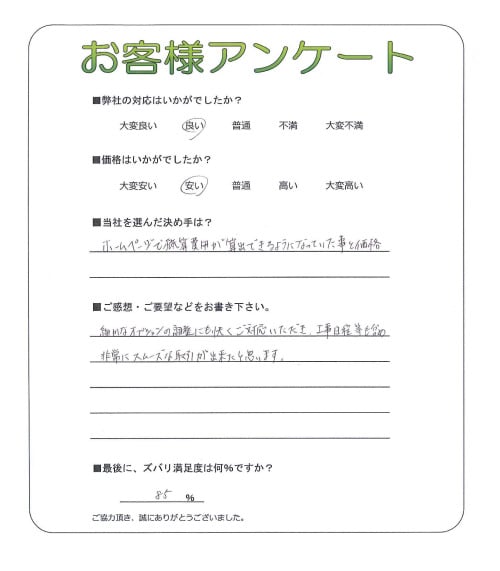 お客様アンケート
■弊社の対応はいかがでしたか？
大変良い 良い 普通 不満 大変不満
■価格はいかがでしたか？
大変安い 安い 普通 高い 大変高い
■当社を選んだ決め手は？
ホームページで概算費用が算出できるようになっていた事と価格
■ご感想・ご要望などをお書き下さい。
細かなオプションの調整にも快くご対応いただき、工事日程等も含め
非常にスムーズな取引が出来たと思います。
■最後に、ズバリ満足度は何％ですか？
85 ％
ご協力頂き、誠にありがとうございました。